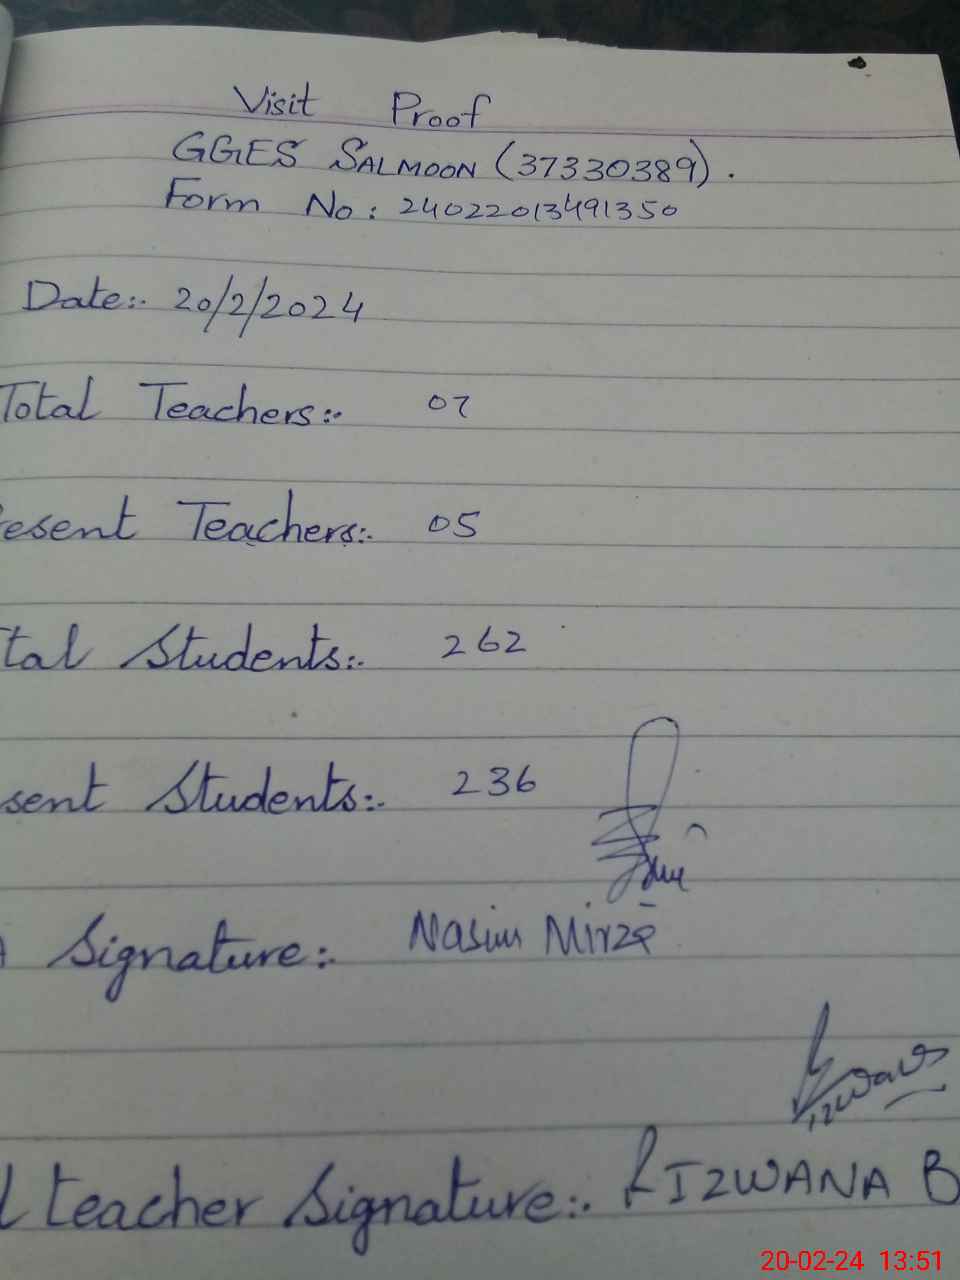 Visit Proof
GGES SALMOON (37330389).
Form No: 24022013491350
Date:- 20/2/2024
Total Teachers:- 07
esent Teachers:- 05
tal Students:- 262
sent Students:- 236
Signature:- Nasim Mirza
Rizwana
teacher Signature:- RIZWANA B
20-02-24 13:51